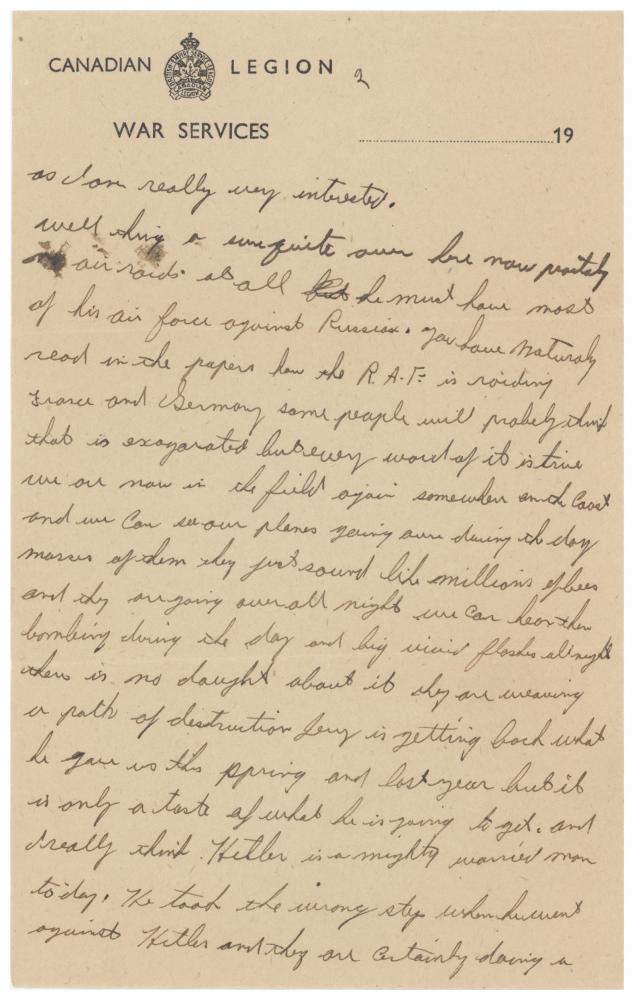 CANADIAN LEGION
2
WAR SERVICES
19
as I am really very interested.
well thing a quite over here now
air raids at all he must have most
of his air force against Russia. You have naturaly
read in the papers how the R.A.F. is raiding
France and Germany some people will probely think
that is exagarated but every word of it is true
we are now in the field again somewhere on the Coast
and we can see our planes going over during the day
masses of them they just sound like millions of bees
and they are going over all night we can hear them
bombing during the day and big vivid flashes at night
there is no daught about it they are weaving
a path of destruction Jerry is getting back what
he gave us this spring and last year but it
is only a taste of what he is going to get. and
I really think Hitler is a mighty worried man
today. He took the wrong step when he went
against Hitler and they are certainly doing a